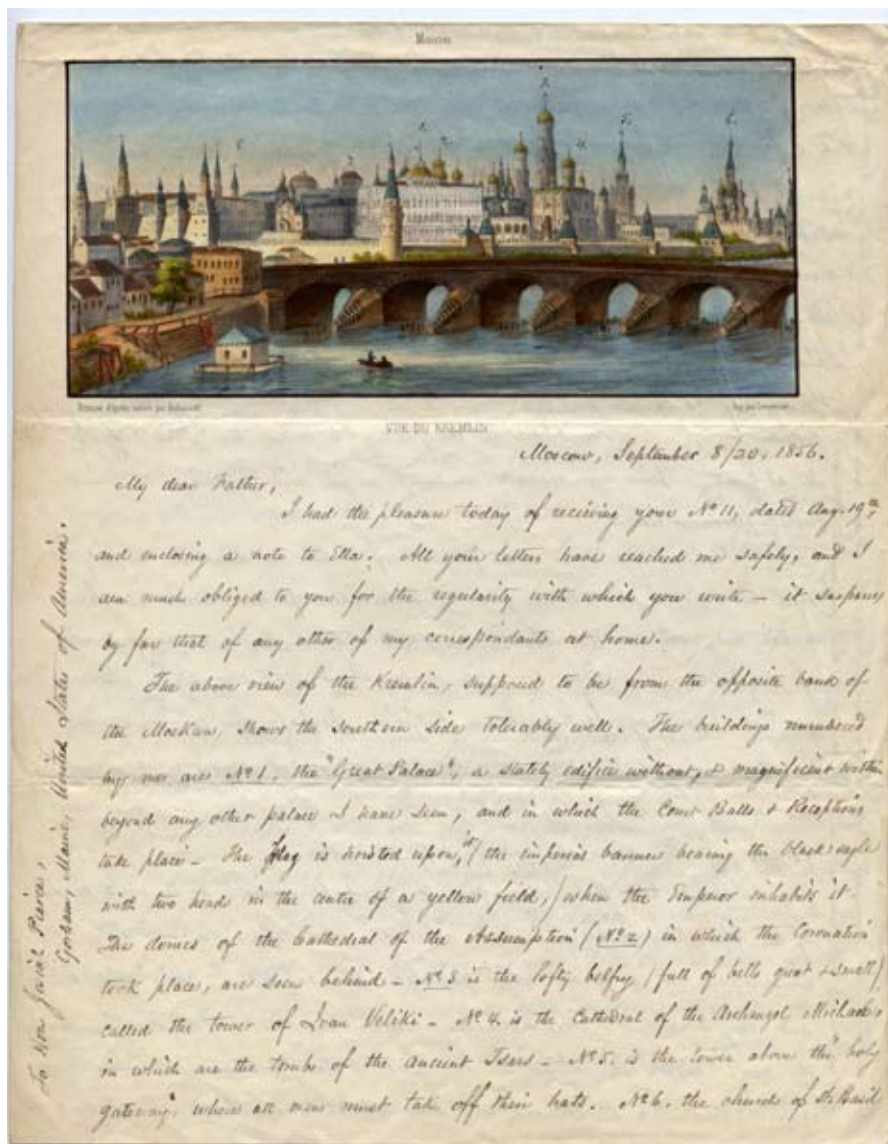 Moscou
1.
2.
3.
4.
5.
6.
Dessiné d'après nature par
Imp. par Lemercier
VUE DU KREMLIN
Moscow, September 8/20. 1856.
My dear Father,
I had the pleasure today of recieving your No 11, dated Aug. 19th,
and enclosing a note to Ella. All your letters have reached me safely, and I
am much obliged to you for the regularity with which you write – it surpasses
by far that of any other of my correspondants at home.
The above view of the Kremlin, supposed to be from the opposite bank of
the Moskwa, shows the southern side tolerably well. The buildings numbered
by me are No 1. the "Great Palace", a stately edifice without, & magnificent within
beyond any other palace I have seen, and in which the Court Balls & Receptions
take place – The flag is hoisted upon it (the imperial banner bearing the black eagle
with two heads in the centre of a yellow field,) when the Emperor inhabits it
The domes of the Cathedral of the Assumption (No 2) in which the Coronation
took place, are seen behind – No 3 is the lofty belfry (full of bells great & small)
called the tower of Ivan Veliki – No 4. is the Cathedral of the Archangel Michael,
in which are the tombs of the ancient Tsars – No 5. is the tower above the "holy
gateway" where all men must take off their hats. No 6. the church of St. Basil
To Hon Josiah Pierce,
Gorham, Maine, United States of America.